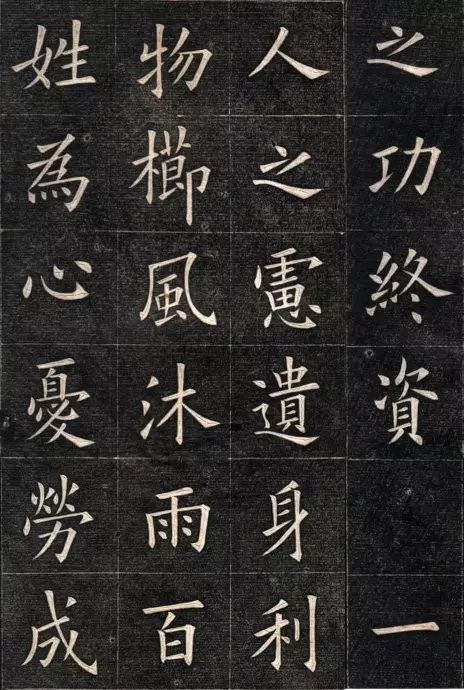 之功終資一
人之慮遺身利
物櫛風沐雨百
姓為心憂勞成